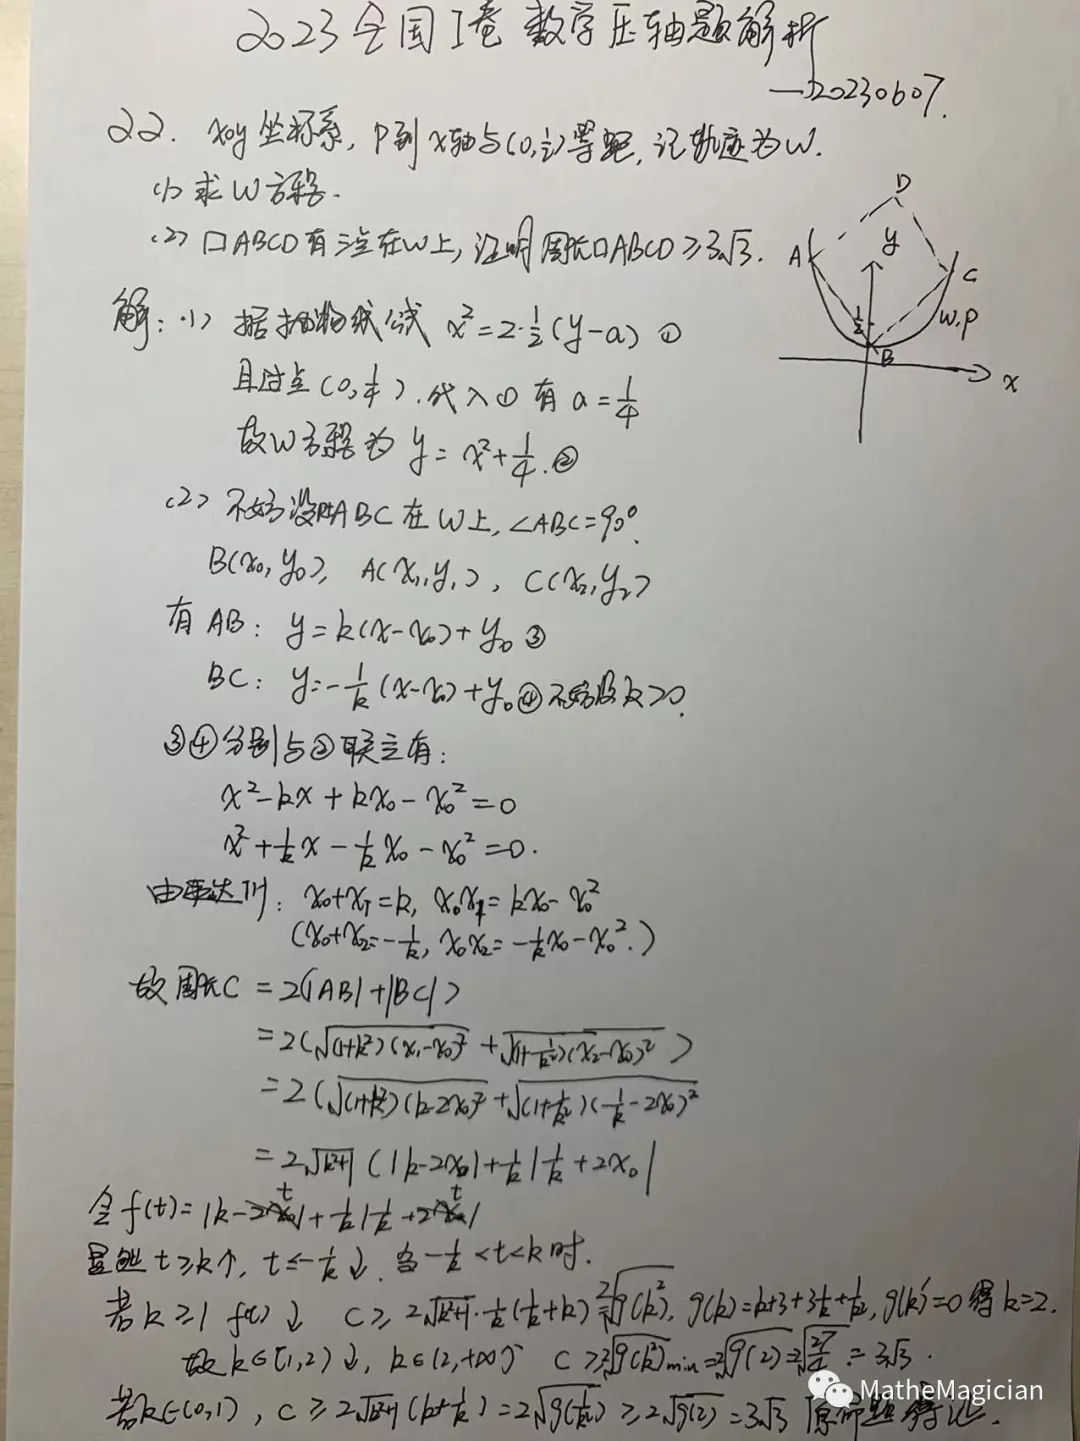 2023全国I卷 数学压轴题解析
—20230607.
22. xoy坐标系, P到x轴与(0,½)等距, 记轨迹为W.
(1) 求W方程.
(2) 口ABCD有三点在W上, 证明周长口ABCD≥3√3.
D
A
y
C
½
W.P
B
x
解: (1) 据抛物线公式 x²=2·½(y-a) ①
且过点(0,¼), 代入① 有 a=¼
故W方程为 y=x²+¼. ②
(2) 不妨设ABC在W上, ∠ABC=90°.
B(x₀,y₀), A(x₁,y₁), C(x₂,y₂)
有AB: y=k(x-x₀)+y₀ ③
BC: y=-1/k(x-x₀)+y₀ ④ 不妨设k>0.
③④分别与②联立有:
x²-kx+kx₀-x₀²=0
x²+1/k x-1/k x₀-x₀²=0.
由韦达Th: x₀+x₁=k, x₀x₁=kx₀-x₀²
(x₀+x₂=-1/k, x₀x₂=-1/k x₀-x₀².)
故周长C=2(|AB|+|BC|)
=2(√(1+k²)(x₁-x₀)²+√(1+1/k²)(x₂-x₀)²)
=2(√(1+k²)(k-2x₀)²+√(1+1/k²)(-1/k-2x₀)²
=2√k²+1(|k-2x₀|+1/k|1/k+2x₀|
令f(t)=|k-2t|+1/k|1/k+2t|
显然t≥k↑, t≤-1/k↓, 当-1/k<t<k时.
若k≥1 f(t)↓ C≥2√k²+1·1/k(1/k+k)=2√g(k²), g(k)=k+3+3 1/k+1/k², g(k)'=0得k=2.
故k∈[1,2)↓, k∈(2,+∞)↑ C≥2√g(k²)min=2√g(2)=2√27/4=3√3.
若k∈(0,1), C≥2√k²+1(k+1/k)=2√g(1/k²)≥2√g(2)=3√3 原命题得证.
MatheMagician